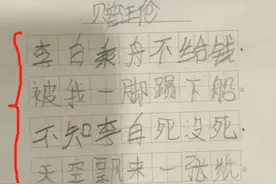 贝曾王伦
李白乘舟不给钱,
被我一脚踢下船。
不知李白死没死,
天空飘来一张纸。